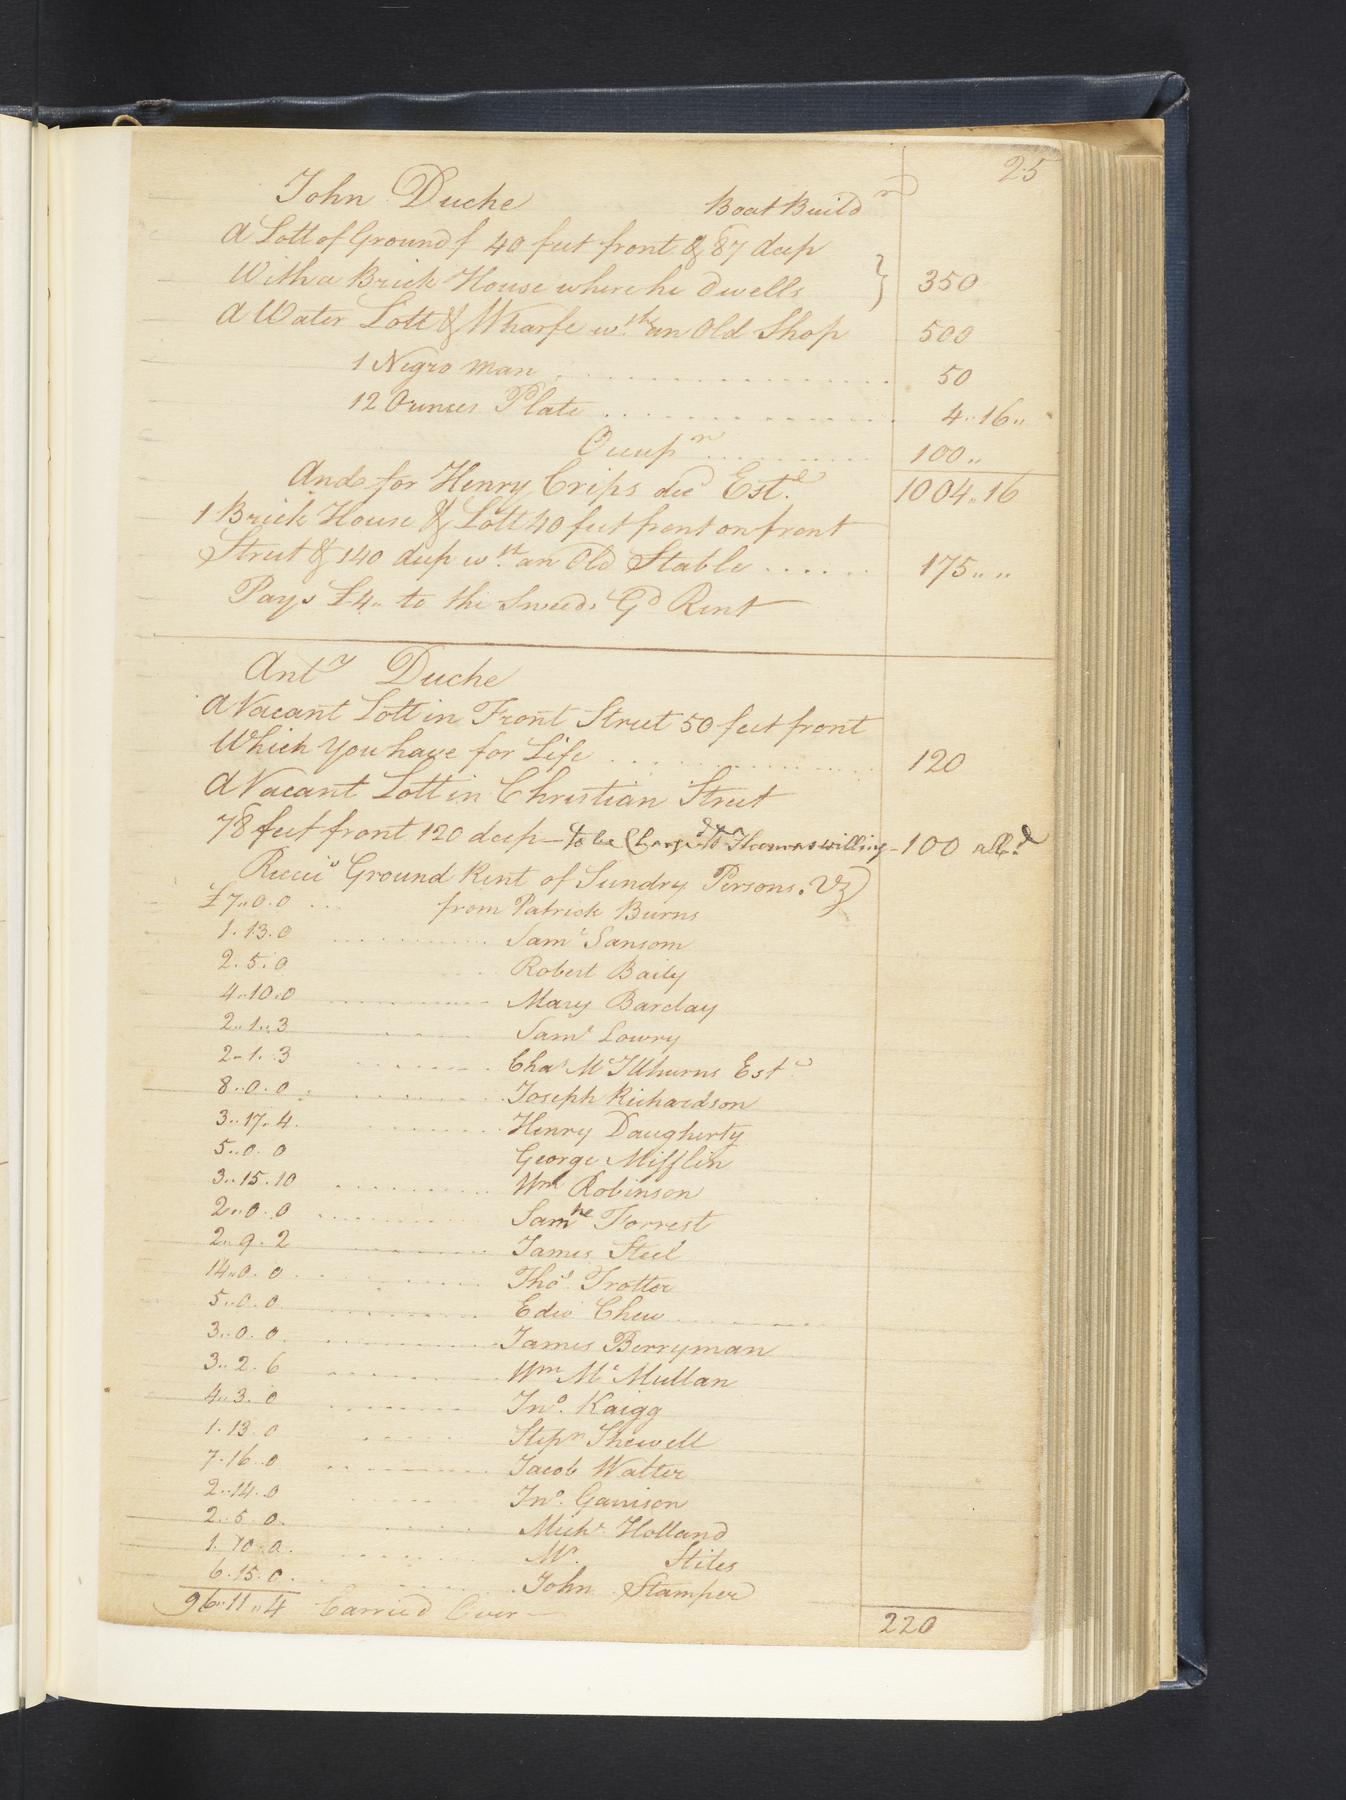 25
John Duche Boat Build^r
A Lott of Ground f 40 feet front & 87 deep
With a Brick House where he Dwells } 350
A Water Lott & Wharfe w.th an Old Shop 500
1 Negro Man .............. 50
12 Ounces Plate .............. 4..16..
Occup^n .......... 100..
And for Henry Crips dec^d Est.^e 1004..16
1 Brick House & Lott 40 feet front on front
Street & 140 deep w.th an Old Stable ...... 175.. ..
Pays £4.. to the Sweeds G^d Rent
Ant^y Duche
A Vacant Lott in Front Street 50 feet front
Which You have for Life .............. 120
A Vacant Lott in Christian Street
78 feet front 120 deep — to be Charg^d to Thomas Willing - 100 all.^d
Recei^s Ground Rent of Sundry Persons. Viz
£7..0.0 ... from Patrick Burns
1.13.0 ............ Sam^l Sansom
2.5.0 .. Robert Baily
4..10..0 ............ Mary Barclay
2..1..3 ........ Sam^l Lowry
2-1.3 ........ Cha^s Mc Ilhurns Est^e
8..0.0 ............ Joseph Richardson
3..17..4. .......... Henry Daugherty
5..0.0 George Mifflin
3..15.10 .......... Wm Robinson
2..0.0 .......... Sam^he Forrest
2..9.2 .......... James Steel
14..0.0 .......... Tho^s Trotter
5..0.0 .......... Edw^d Chew
3..0.0. .......... James Berryman
3..2.6 .......... W^m Mc Mullan
4..3.0 ........ Jn^o. Kaigg
1.13.0 ..... Step^n Shewell
7.16.0 .......... Jacob Walter
2..14.0 ...... Jn^o. Garrison
2..5.0. ...... Mich^l Holland
1.10.0. ........ M^r. Stiles
6.15.0. ........ John Stamper
96..11..4 Carried Over — 220